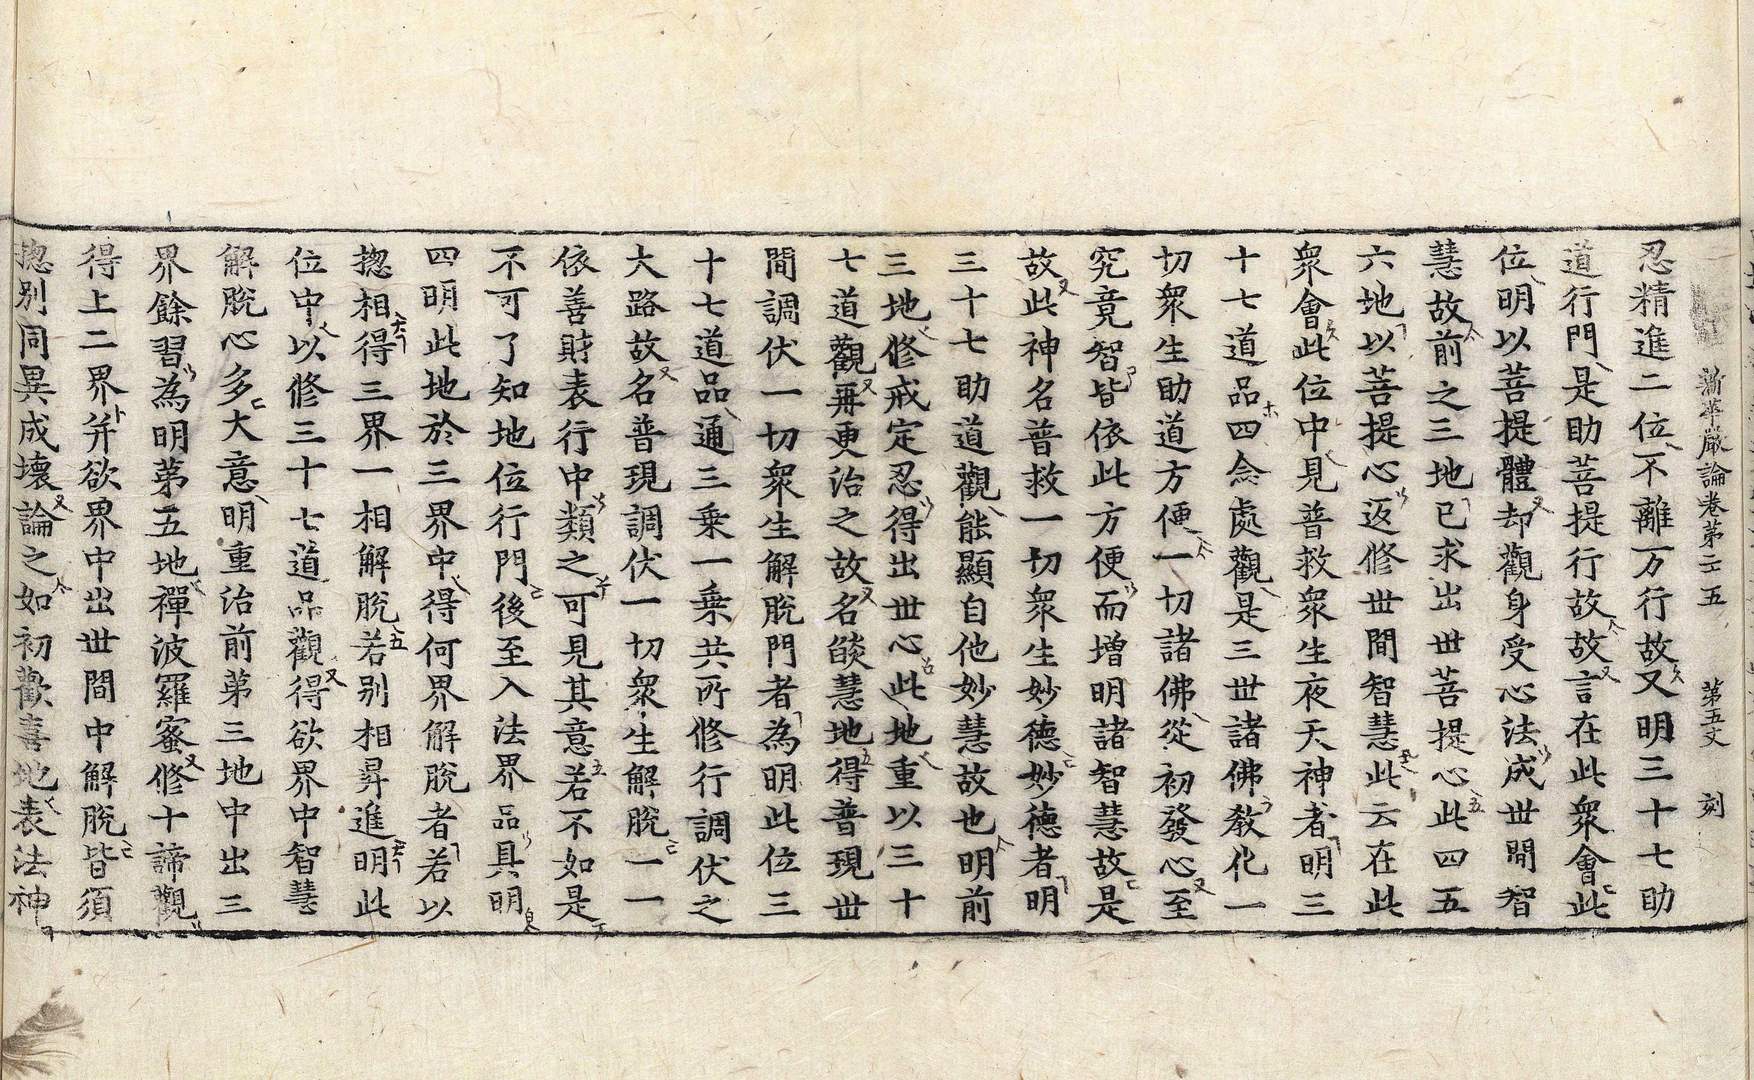 新華嚴論卷第二十五 第五丈 刻
忍精進二位不離万行故又明三十七助
道行門是助菩提行故故言在此衆會此
位明以菩提體却觀身受心法成世間智
慧故前之三地已求出世菩提心此四五
六地以菩提心返修世間智慧此云在此
衆會此位中見普救衆生夜天神者明三
十七道品四念處觀是三世諸佛教化一
切衆生助道方便一切諸佛從初發心至
究竟智皆依此方便而增明諸智慧故是
故此神名普救一切衆生妙德妙德者明
三十七助道觀能顯自他妙慧故也明前
三地修戒定忍得出世心此地重以三十
七道觀再更治之故名焰慧地得普現世
間調伏一切衆生解脫門者為明此位三
十七道品通三乗一乗共所修行調伏之
大路故名普現調伏一切衆生解脫一一
依善財表行中類之可見其意若不如是
不可了知地位行門後至入法界品具明
四明此地於三界中得何界解脫者若以
揔相得三界一相解脫若別相昇進明此
位中以修三十七道品觀得欲界中智慧
解脫心多大意明重治前苐三地中出三
界餘習為明苐五地禪波羅蜜修十諦觀
得上二界并欲界中出世間中解脫皆須
揔別同異成壞論之如初歡喜地表法神